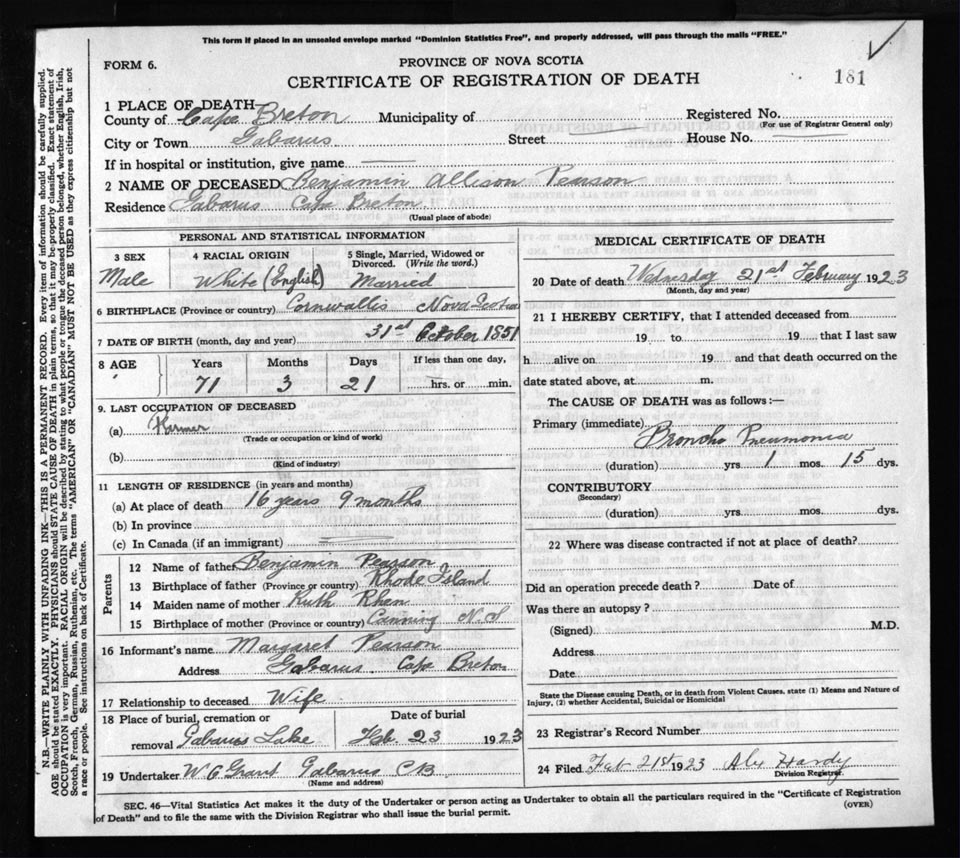 This form if placed in an unsealed envelope marked "Dominion Statistics Free", and properly addressed, will pass through the mails "FREE."
FORM 6.
PROVINCE OF NOVA SCOTIA
181
CERTIFICATE OF REGISTRATION OF DEATH
1 PLACE OF DEATH
County of Cape Breton Municipality of Registered No.
(For use of Registrar General only)
City or Town Gabarus Street House No.
If in hospital or institution, give name
2 NAME OF DECEASED Benjamin Allison Pearson
Residence Gabarus Cape Breton
(Usual place of abode)
PERSONAL AND STATISTICAL INFORMATION
3 SEX 4 RACIAL ORIGIN 5 Single, Married, Widowed or Divorced. (Write the word.)
Male White (English) Married
6 BIRTHPLACE (Province or country) Cornwallis Nova Scotia
7 DATE OF BIRTH (month, day and year) 31st October 1851
8 AGE Years Months Days If less than one day,
71 3 21 hrs. or min.
9. LAST OCCUPATION OF DECEASED
(a) Farmer
(Trade or occupation or kind of work)
(b)
(Kind of industry)
11 LENGTH OF RESIDENCE (in years and months)
(a) At place of death 16 years 9 months
(b) In province
(c) In Canada (if an immigrant)
Parents
12 Name of father Benjamin Pearson
13 Birthplace of father (Province or country) Rhode Island
14 Maiden name of mother Ruth Rhen
15 Birthplace of mother (Province or country) Canning N.S
16 Informant's name Margaret Pearson
Address Gabarus Cape Breton
17 Relationship to deceased Wife
18 Place of burial, cremation or Date of burial
removal Gabarus Lake Feb. 23 1923
19 Undertaker W G Grant Gabarus CB
(Name and address)
MEDICAL CERTIFICATE OF DEATH
20 Date of death Wednesday 21st February 1923
(Month, day and year)
21 I HEREBY CERTIFY, that I attended deceased from
19 to 19 that I last saw
h alive on 19 and that death occurred on the
date stated above, at m.
The CAUSE OF DEATH was as follows:—
Primary (immediate) Broncho Pneumonia
(duration) yrs 1 mos. 15 dys.
CONTRIBUTORY
(Secondary)
(duration) yrs mos. dys.
22 Where was disease contracted if not at place of death?
Did an operation precede death? Date of
Was there an autopsy?
(Signed) M.D.
Address
Date
State the Disease causing Death, or in death from Violent Causes, state (1) Means and Nature of
Injury, (2) whether Accidental, Suicidal or Homicidal
23 Registrar's Record Number
24 Filed Feb 21st 1923 Alex Hardy
Division Registrar.
SEC. 46—Vital Statistics Act makes it the duty of the Undertaker or person acting as Undertaker to obtain all the particulars required in the "Certificate of Registration
of Death" and to file the same with the Division Registrar who shall issue the burial permit.
(OVER)
N.B.—WRITE PLAINLY WITH UNFADING INK—THIS IS A PERMANENT RECORD. Every item of information should be carefully supplied.
AGE should be stated EXACTLY. PHYSICIANS should STATE CAUSE OF DEATH in plain terms, so that it may be properly classified. Exact statement of
OCCUPATION is very important. RACIAL ORIGIN will be described by stating to what people or tongue the deceased person belonged, whether English, Irish,
Scotch, French, German, Russian, Ruthenian, etc. The terms "AMERICAN" or "CANADIAN" MUST NOT BE USED as they express citizenship but not
a race or people. See instructions on back of Certificate.